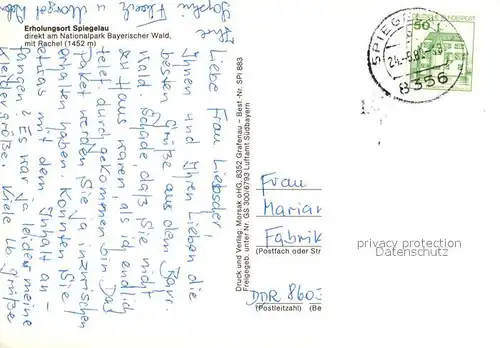 Erholungsort Spiegelau
direkt am Nationalpark Bayerischer Wald,
mit Rachel (1452 m)
Liebe Frau Liebsder,
Ihnen und Ihren Lieben die
besten Grüße aus dem Bayr.
Wald. Schade, daß Sie nicht
zu Haus waren, als ich endlich
telef. durchgekommen bin. Das
Paket werden Sie ja inzwischen
erhalten haben. Konnten Sie
etwas mit dem Inhalt an-
fangen? Es war ja leider meine
Kleidergröße. Viele lb. Grüße
Ihre
Druck und Verlag: Morsak oHG, 8352 Grafenau – Best.-Nr. SPI 883
Freigegeben unter Nr. GS 300/6793 Luftamt Südbayern
50
DEUTSCHE BUNDESPOST
SPIEGE
8356
Frau
Marian
Fabrik
(Postfach oder Str
DDR 860
(Postleitzahl) (Be
privacy protection
Datenschutz